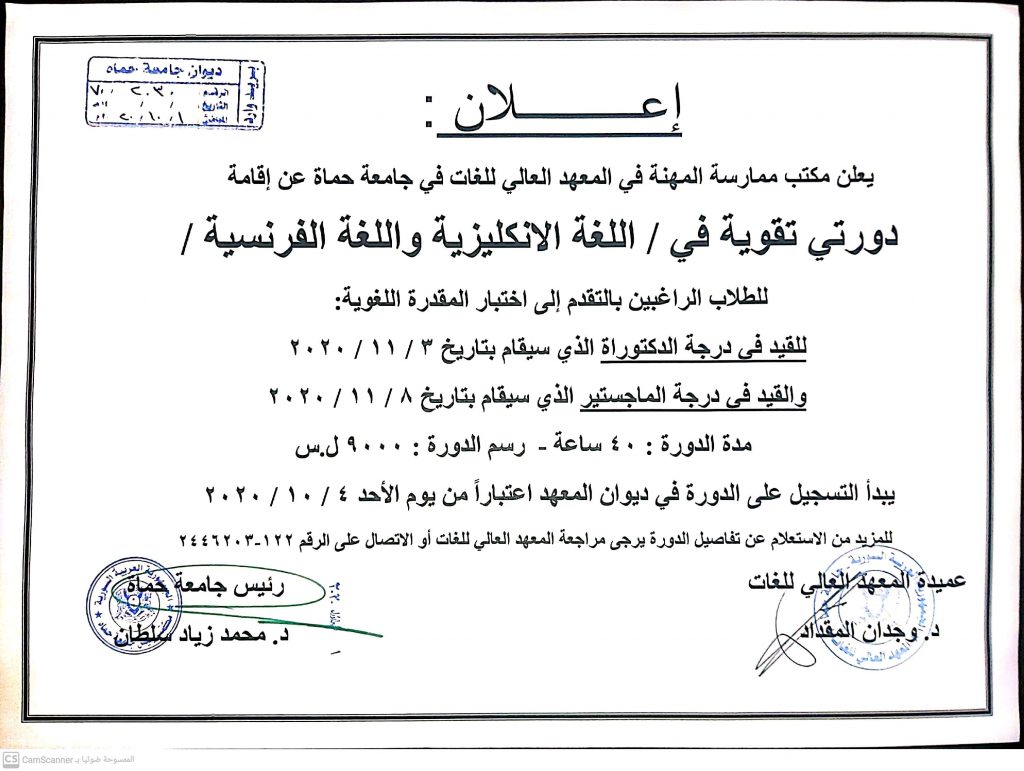 ديوان جامعة حماه
بريد وارد
الرقم
التاريخ
إعـــــــلان :
يعلن مكتب ممارسة المهنة في المعهد العالي للغات في جامعة حماة عن إقامة
دورتي تقوية في / اللغة الانكليزية واللغة الفرنسية /
للطلاب الراغبين بالتقدم إلى اختبار المقدرة اللغوية:
للقيد في درجة الدكتوراة الذي سيقام بتاريخ ٣ / ١١ / ٢٠٢٠
والقيد في درجة الماجستير الذي سيقام بتاريخ ٨ / ١١ / ٢٠٢٠
مدة الدورة : ٤٠ ساعة - رسم الدورة : ٩٠٠٠ ل.س
يبدأ التسجيل على الدورة في ديوان المعهد اعتباراً من يوم الأحد ٤ / ١٠ / ٢٠٢٠
للمزيد من الاستعلام عن تفاصيل الدورة يرجى مراجعة المعهد العالي للغات أو الاتصال على الرقم ١٢٢-٢٤٤٦٢٠٣
عميدة المعهد العالي للغات
د. وجدان المقداد
رئيس جامعة حماة
د. محمد زياد سلطان
الجمهورية العربية السورية
CS CamScanner الممسوحة ضوئيا بـ